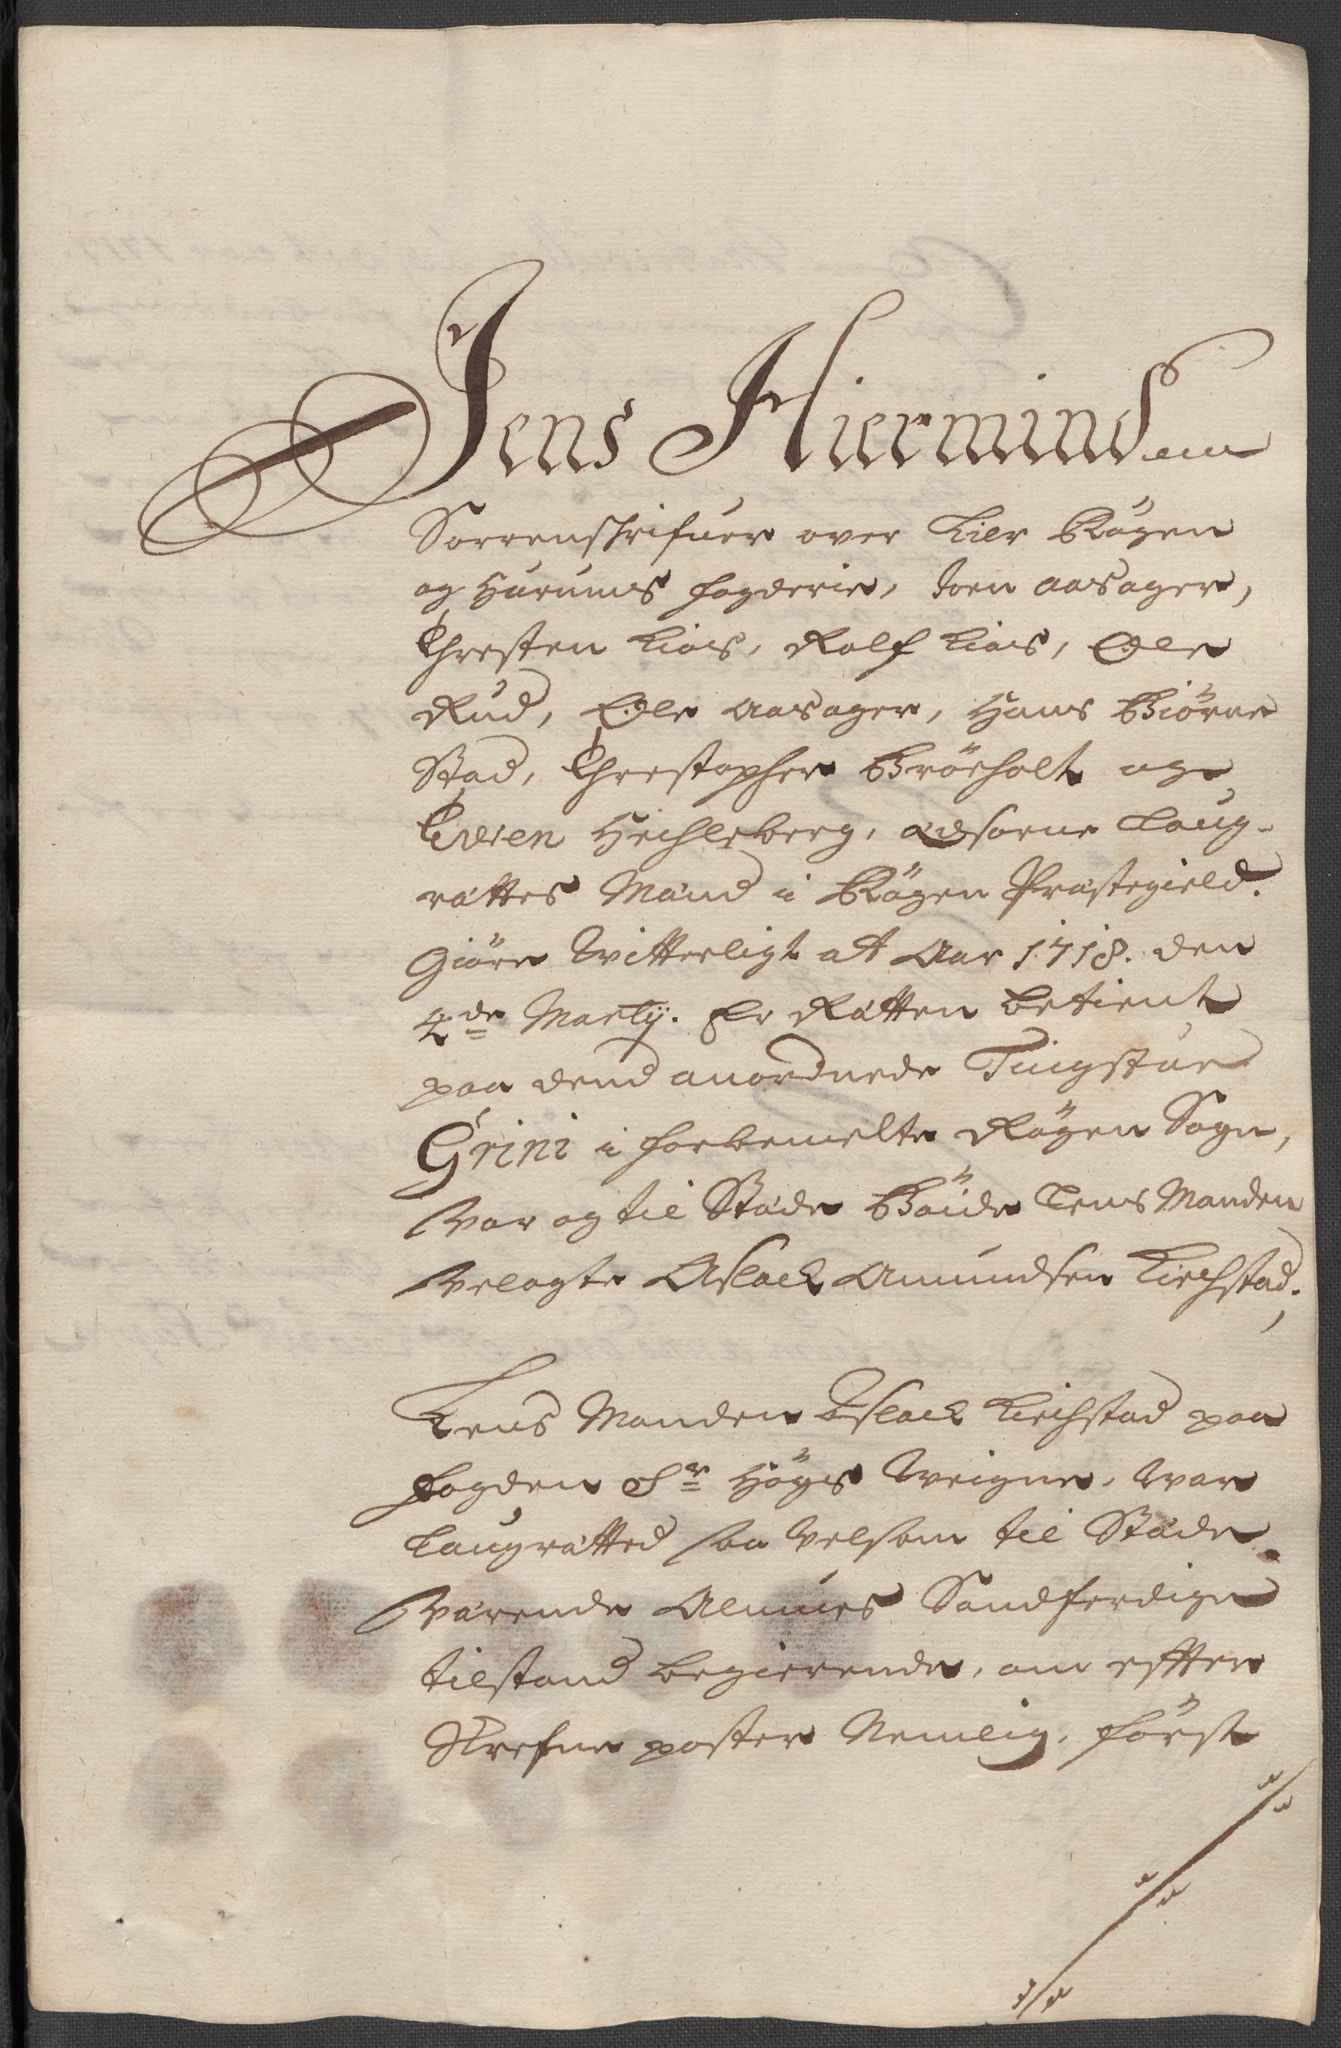 Jens Hiermind
Sorrenschrifuer over Lier Røgen
og Hurums fogderie, Joen Aasager,
Christen Kiøs, Rolf Kiøs, Ole
Rud, Ole Aasager, Hans Biørne
Stad, Christopher Brøeholt og
Hechleberg, Edsorne Laug-
rættes Mænd i Røgen Præstegield.
Giøre Witterligt at Aar 1718. den
4de Martij. Er Rætten betient
paa dend anordnede Tingstue
Grini i forbemelte Røgen Sogn,
War og til Stæde Bøide Lens Manden
Welagte Aslack Amundsen Kirchstad,
Lens Manden Aslack Kirchstad paa
fogden Sr Høgs Weigne, War
Laugrætted saa Velsom til Stæde
Wærende Almues Sandferdige
tilstand begierende, om effter
Skrefne poster Nemlig, først